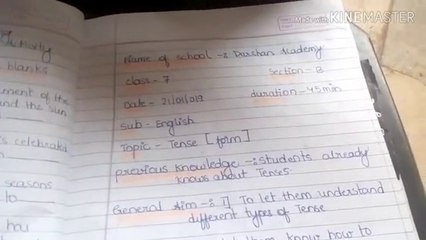 Activity
blanks
ement of the
nd the Sun
s celebrated
seasons
to
hou
Made with KINEMASTER
Name of school -: Darshan Academy
class - 7
section - B
Date - 21/01/019
duration - 45 min
Sub - English
Topic - Tense [form]
previous knowledge -: students already
knows about Tenses
General Aim -: 1] To let them understand
different types of Tense
them know how to